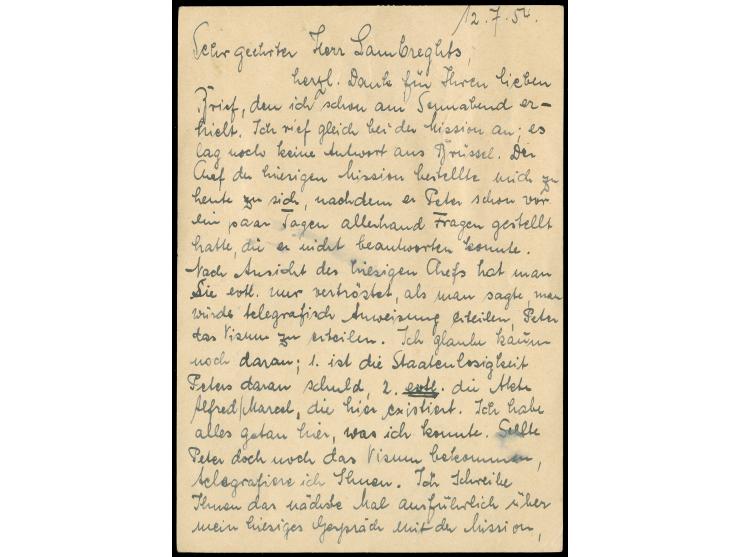 12.7.54.
Sehr geehrter Herr Lambreghts,
herzl. Dank für Ihren lieben
Brief, den ich schon am Sonnabend er-
hielt. Ich rief gleich bei der Mission an; es
lag noch keine Antwort aus Brüssel. Der
Chef der hiesigen Mission bestellte mich zu
heute zu sich, nachdem er Peter schon vor
ein paar Tagen allerhand Fragen gestellt
hatte, die er nicht beantworten konnte.
Nach Ansicht des hiesigen Chefs hat man
Sie evtl. nur vertröstet, als man sagte, man
würde telegrafisch Anweisung erteilen, Peter
das Visum zu erteilen. Ich glaube kaum
noch daran; 1. ist die Staatenlosigkeit
Peters daran schuld, 2. evtl. die Akte
Alfred/Marcel, die hier existiert. Ich habe
alles getan hier, was ich konnte. Sollte
Peter doch noch das Visum bekommen,
telegrafiere ich Ihnen. Ich schreibe
Ihnen das nächste Mal ausführlich über
mein hiesiges Gespräch mit der Mission,